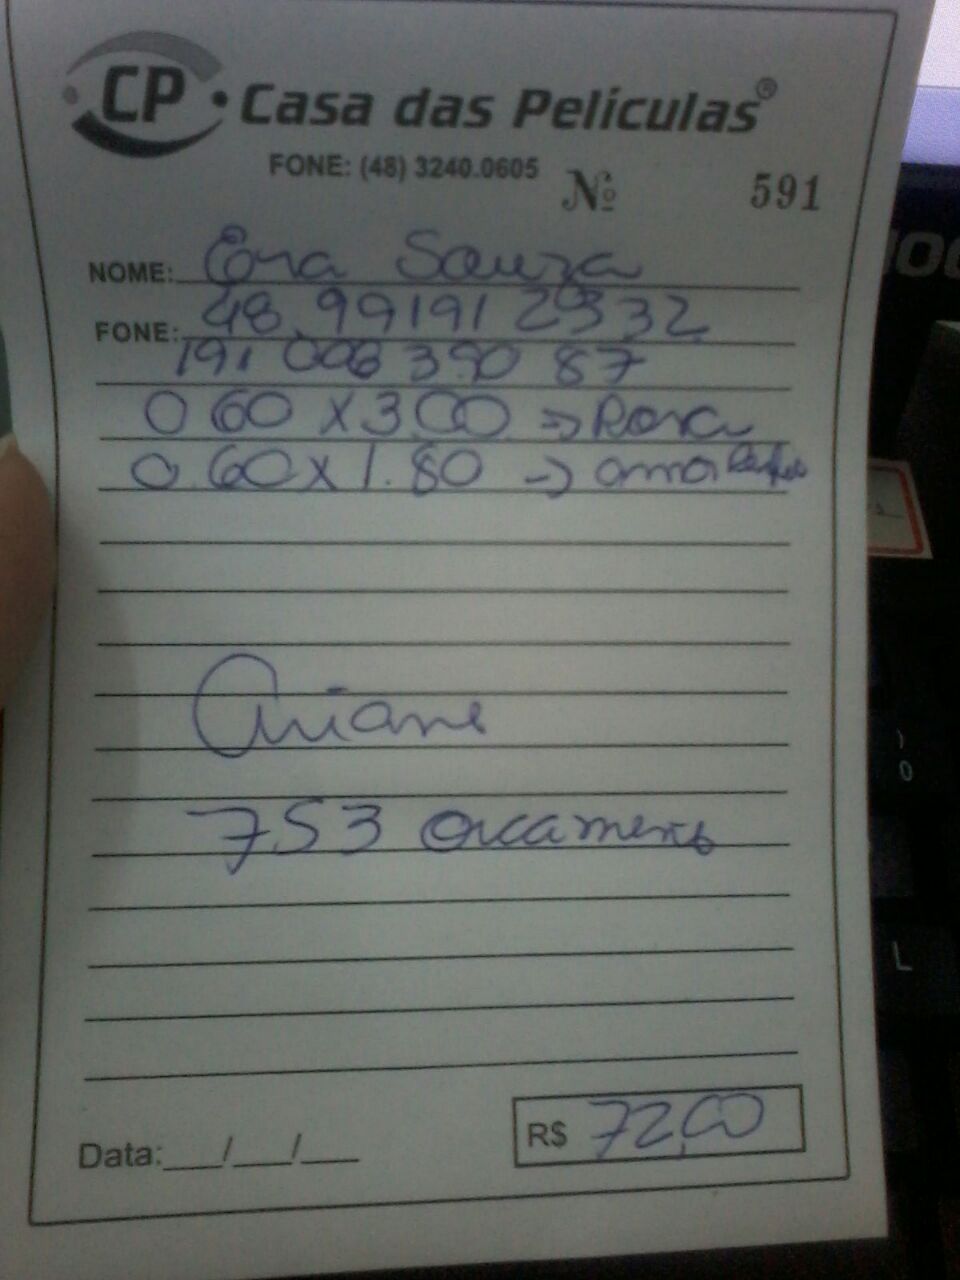 CP Casa das Películas®
FONE: (48) 3240.0605 Nº 591
NOME: Souza
FONE: 48 99191 2332
191 006 390 87
0 60 x 3.00 => Rosa
0.60 x 1.80 ->
Ariane
753 orcamento
Data:___/___/___ R$ 72,00